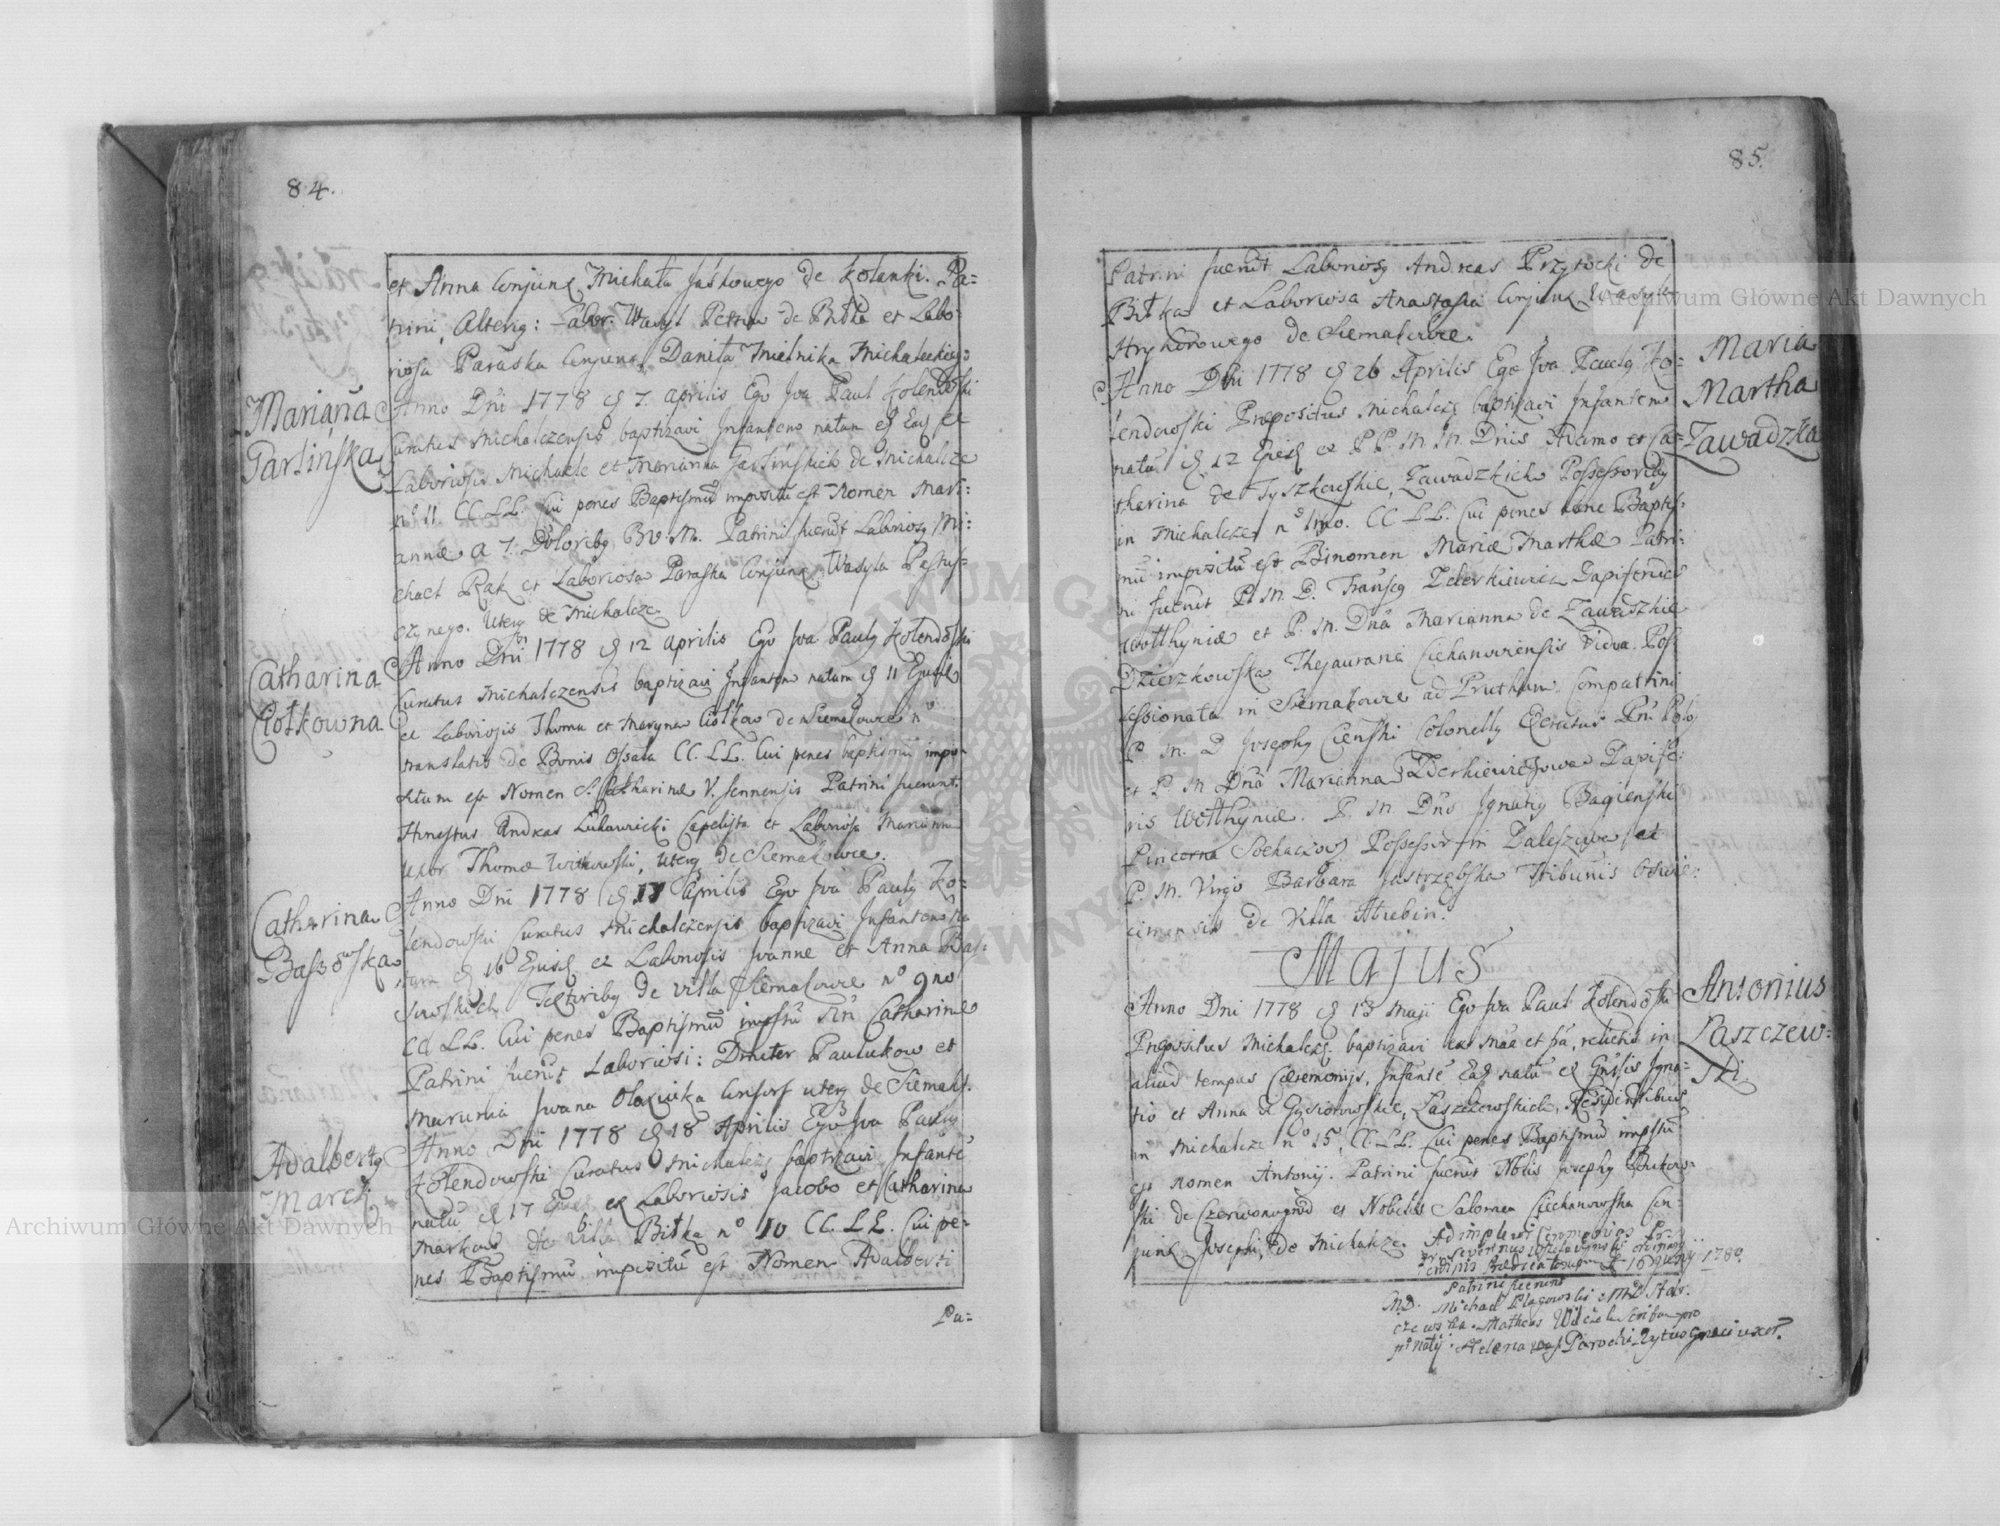 84.
et Anna Conjunx Michała Jaśkowego de Kolanki. Pa=
trini Alterius: Labor: Wasyl Petrow de Bitka et Labo=
riosa Paraska Conjunx Daniła Mielnika Michaleckiego
Mariaña
Garlińska
Anno Dñi 1778 d 7. aprilis Ego Joa Paul Kolendowski
Curatus Michalczensis baptizavi Infantem natam et
Laboriosis Michaele et Marianna Garlinskich de Michalcze
nº 11 CC. LL. Cui penes Baptismũ impositũ est Nomen Mari=
annæ a 7. Doloribus B.V.M. Patrini fuerũt Laboriosus Mi=
chael Rak et Laboriosa Paraska Conjunx Wasyla Pastus=
zynego. Uterq de Michalcze
Catharina
Ciołkowna
Anno Dñi 1778 d 12 aprilis Ego Joa Paulus Kolendowski
Curatus Michalczensis baptizavi Infantem natam d 11 Ejusd
ex Laboriosis Thoma et Maryna Ciołkow de Siemakowce nº
translatis de Bonis CC. LL. Cui penes baptismũ impo=
situm est Nomen S. Catharinæ V. Sennensis Patrini fuerunt.
Honestus Andreas Capelista et Laboriosa Marianna
uxor Thomæ Witkowski, uterq de Siemakowce.
Catharina
Bassowska
Anno Dñi 1778 d 17 aprilis Ego Joa Paulus Ko=
lendowski Curatus Michalczensis baptizavi Infantem na=
tam d 16 Ejusd ex Laboriosis Joanne et Anna Bas=
sowskich Textoribus de villa Siemakowce nº 9no
CC LL. Cui penes Baptismũ Catharinæ
Patrini fuerũt Laboriosi: Dmiter Paulukow et
Marunia Jwana Olexiuka Consors uterq de Siemak:
Adalbertus
Marek
Anno Dñi 1778 d 18 Aprilis Ego Joa Paulus
Kolendowski Curatus Michalcz baptizavi Infantẽ
natũ d 17 ex Laboriosis Jacobo et Catharina
Markow de Villa Bitka nº 10 CC. LL. Cui pe=
nes Baptismũ impositũ est Nomen Adalberti
Pa=
85.
Patrini fuerũt Laboriosus Andreas Przytocki de
Bitka et Laboriosa Anastasia Conjunx Wasyla
Hryhorowego de Siemakowce.
Maria
Martha
Zawadzka
Anno Dñi 1778 d 26 Aprilis Ego Joa Paulus Ko=
lendowski Præpositus Michalcze baptizavi Infantem
natã d 12 Ejusd ex PP. M. M. Dnis Adamo et Ca=
tharina de Tyszkowskie, Zawadzkich Possessoribus
in Michalcze nº 1mo. CC LL. Cui penes hunc Baptis=
mũ impositũ est Binomen Mariæ Marthæ Patri=
ni fuerũt P. M. D. Franscus Zderkiewicz Dapiferides
Wolhyniæ et P. M. Dña Marianna de Zawadzkie
Dzierzkowska Thesauraria Ciechanoviensis Vidua. Pos=
sessionata in Siemakowce ad Pruthum. Compatrini
P. M. D Josephus Cienski Colonellus Exercitus Pol
et P M Dña Marianna Zderkiewiczowa Dapife=
ris Wolhyniæ. P. M. Dñs Ignatius Bagienski
Pincerna Sochaczow Possessor in Daleszowe et
P. M. Virgo Barbara Jastrzębska Tribunis Oswie=
cimensis de Villa Strzebin.
Majus
Antonius
Laszczew=
ski.
Anno Dñi 1778 d 13 Maji Ego Joa Paul Kolendowski
Præpositus Michalcz. baptizavi ex aquã et fã, relictis in
aliud tempus Cæremonijs, Infantẽ natũ ex Gnõsis Igna=
tio et Anna de Gąsiorowskie, Laszczewskich, Residentibus
in Michalcze nº 15, CC. LL. Cui penes Baptismũ impstũ
est Nomen Antonij. Patrini fuerũt Nobilis Josephus Bukow=
ski de Czerwonogrod et Nobilis Salomea Ciechanowska Con=
junx Josephi, de Michalcze. Adimplevit Ceremonias Fr.
Severinus ordinis
Prædicatorum d 16 1780.
Patrini fuerunt
M.D. Michael Głogowski et MD Star=
czewska. Matheus Scriba pro
Helena Parochi Rytus Græci uxor.